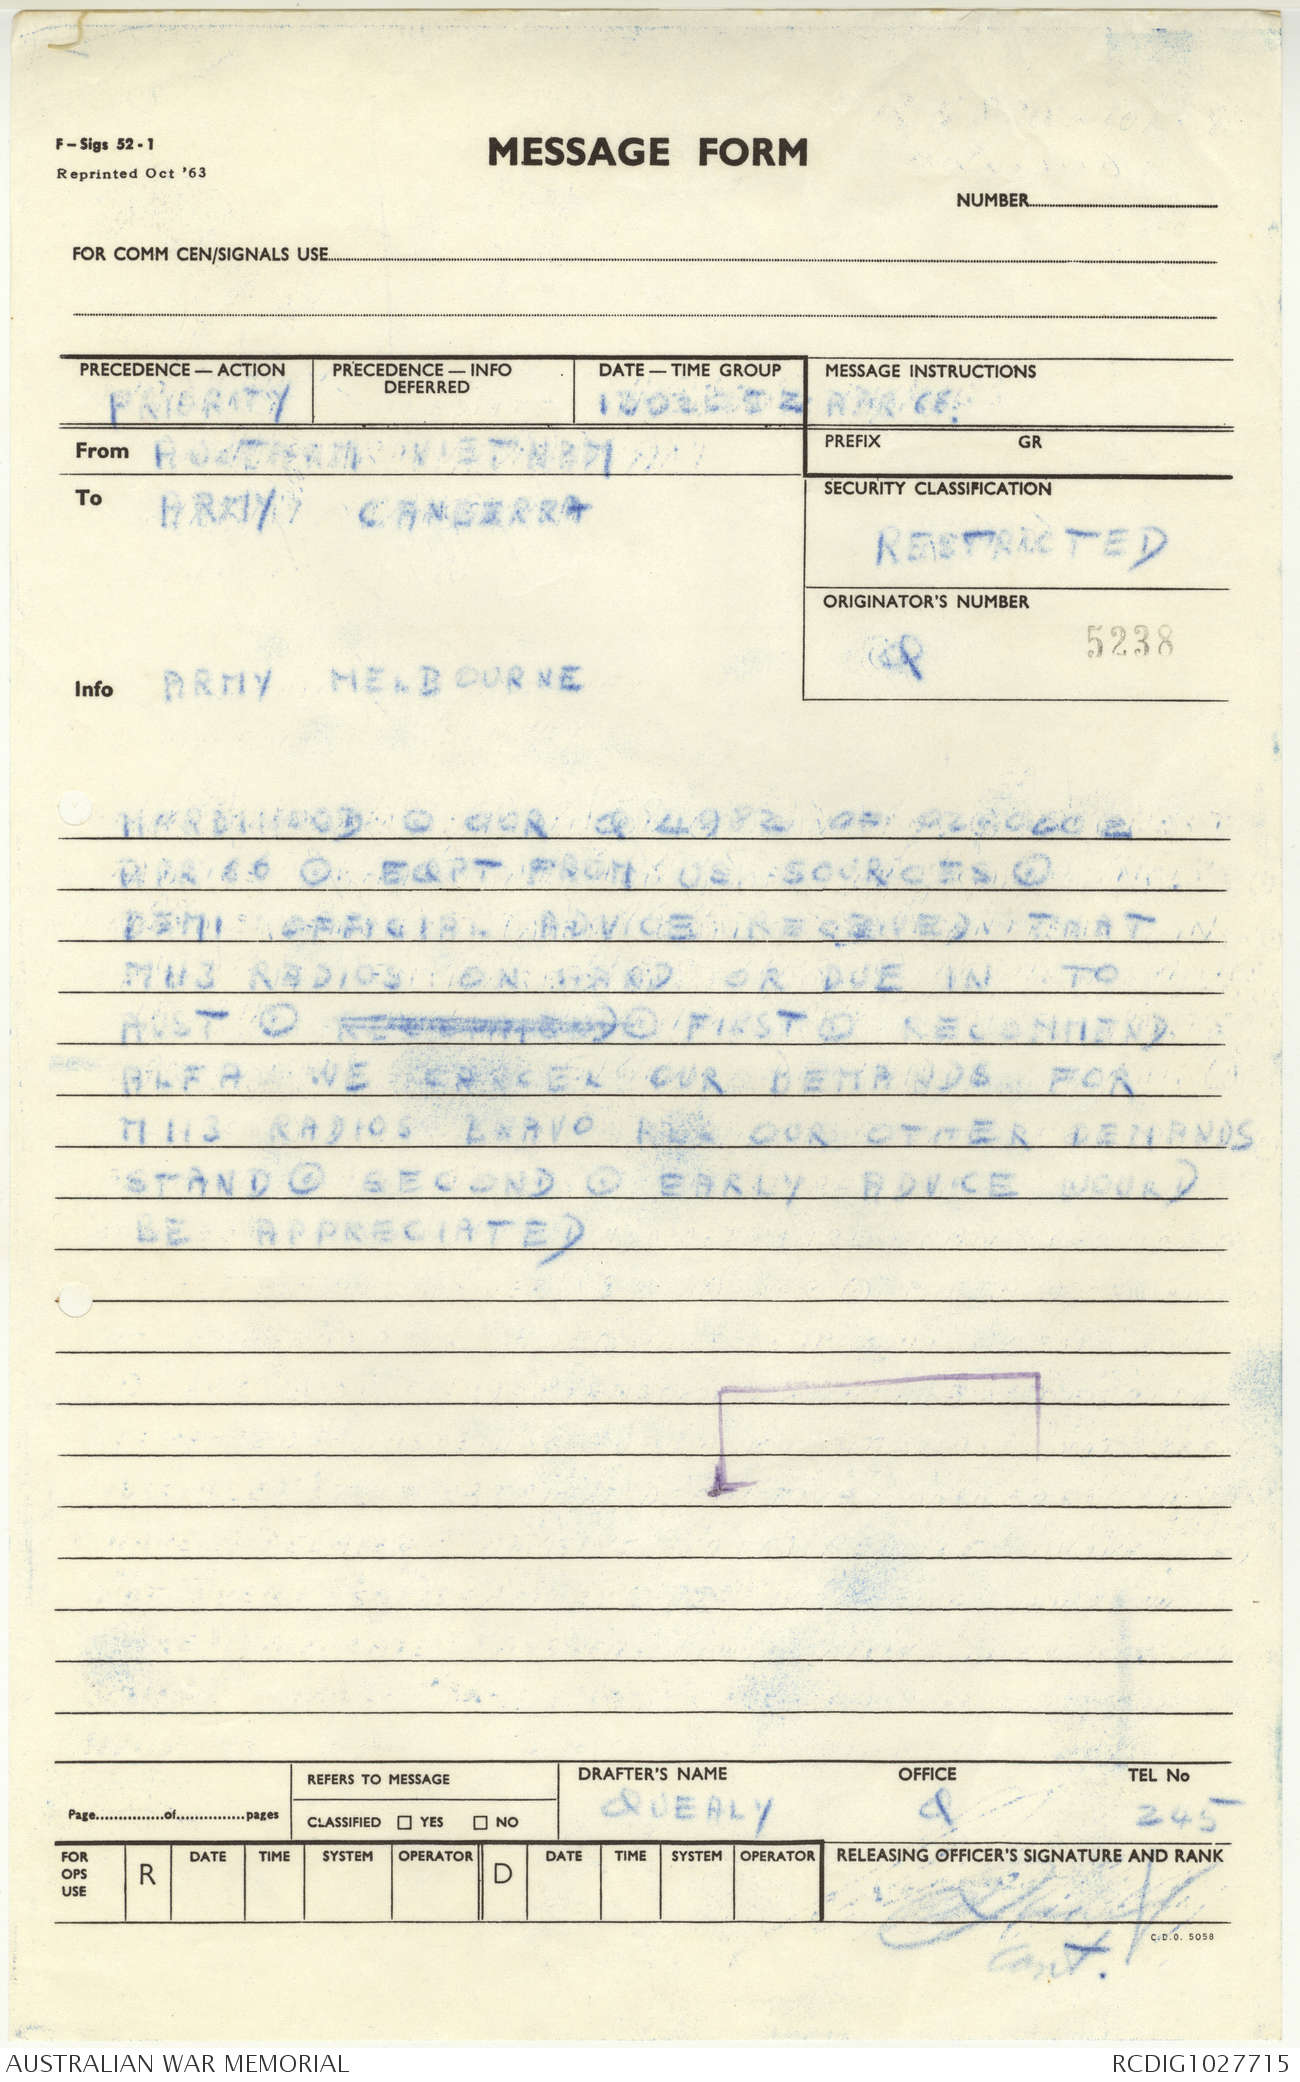 F-Sigs 52-1
Reprinted Oct '63
MESSAGE FORM
NUMBER
FOR COMM CEN/SIGNALS USE
PRECEDENCE — ACTION
PRIORITY
PRECEDENCE — INFO
DEFERRED
DATE — TIME GROUP
MESSAGE INSTRUCTIONS
APR 66.
From AUSTFARM VIETNAM
PREFIX GR
To ARMY CANBERRA
SECURITY CLASSIFICATION
RESTRICTED
ORIGINATOR'S NUMBER
Q 5238
Info ARMY MELBOURNE
HARDIHOOD © OUR Q 4982 OF
MAR 66 © EQPT FROM US SOURCES ©
DEMI OFFICIAL ADVICE RECEIVED THAT
M113 RADIOS ON HAND OR DUE IN TO
AUST © © FIRST © RECOMMEND
ALFA WE CANCEL OUR DEMANDS FOR
M113 RADIOS BRAVO ALL OUR OTHER DEMANDS
STAND © SECOND © EARLY ADVICE WOULD
BE APPRECIATED
Page of pages
REFERS TO MESSAGE
CLASSIFIED YES NO
DRAFTER'S NAME
QUEALY
OFFICE
Q
TEL No
245
FOR OPS USE
R DATE TIME SYSTEM OPERATOR D DATE TIME SYSTEM OPERATOR
RELEASING OFFICER'S SIGNATURE AND RANK
Capt.
C.D.O. 5058
AUSTRALIAN WAR MEMORIAL
RCDIG1027715